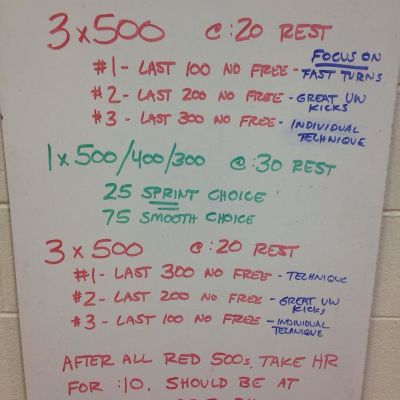 3 x 500 @ :20 REST
FOCUS ON
#1 - LAST 100 NO FREE - FAST TURNS
#2 - LAST 200 NO FREE - GREAT UW KICKS
#3 - LAST 300 NO FREE - INDIVIDUAL TECHNIQUE
1 x 500/400/300 @ :30 REST
25 SPRINT CHOICE
75 SMOOTH CHOICE
3 x 500 @ :20 REST
#1 - LAST 300 NO FREE - TECHNIQUE
#2 - LAST 200 NO FREE - GREAT UW KICKS
#3 - LAST 100 NO FREE - INDIVIDUAL TECHNIQUE
AFTER ALL RED 500s, TAKE HR
FOR :10. SHOULD BE AT